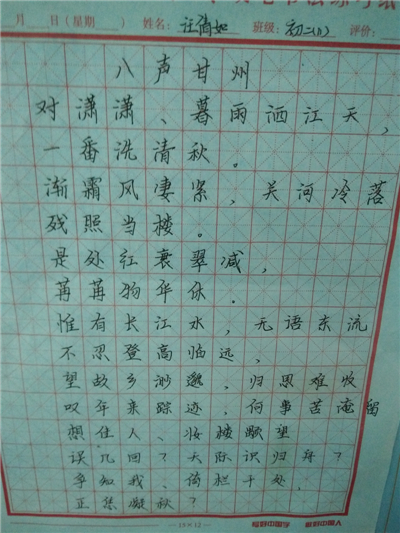 月 日(星期 ) 姓名: 班级: 初二(1) 评价:
八声甘州
对潇潇、暮雨洒江天,
一番洗清秋。
渐霸风凄紧,关河冷落
残照当楼。
是处红衰翠减,
苒苒物华休.
惟有长江水,无语东流
不忍登高临远,
望故乡渺邈,归思难收
叹年来踪迹,何事苦淹留
想佳人、妆楼颙望
误几回?天际识归舟?
争知我、倚栏干处,
正恁凝秋?
15×12 写好中国字 做好中国人